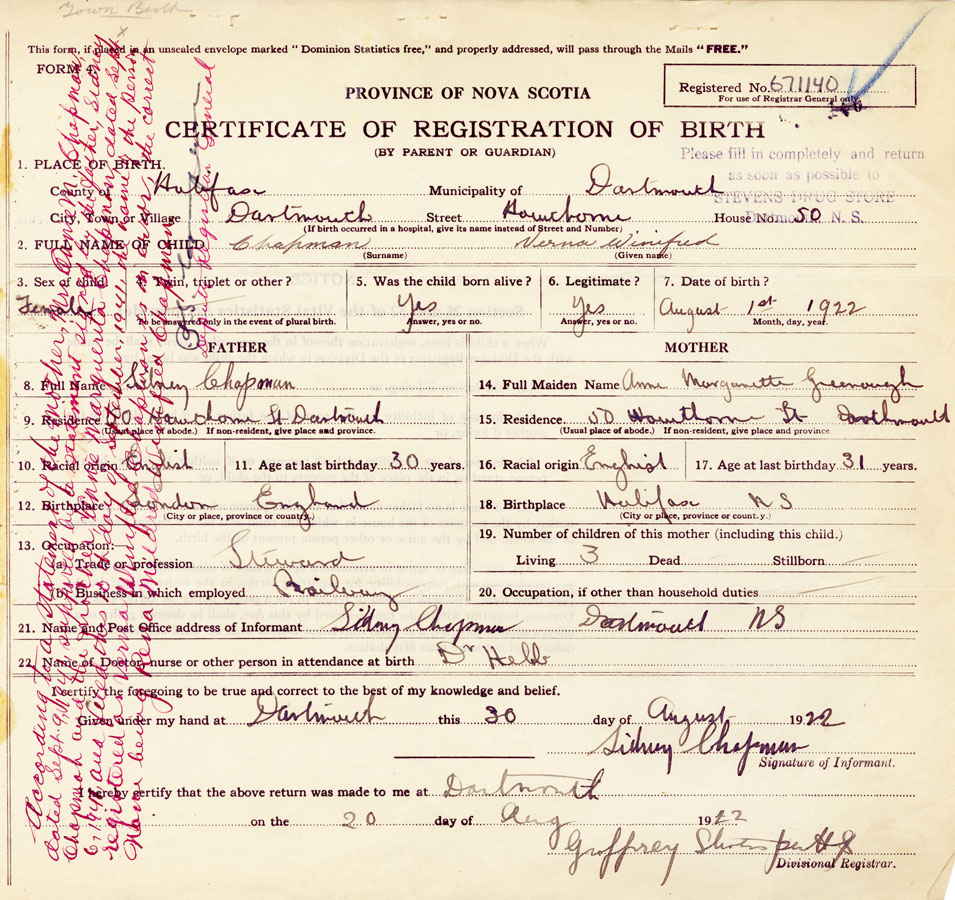 Town Birth
This form, if placed in an unsealed envelope marked "Dominion Statistics free," and properly addressed, will pass through the Mails "FREE."
FORM 4.
Registered No. 671140
For use of Registrar General only
PROVINCE OF NOVA SCOTIA
CERTIFICATE OF REGISTRATION OF BIRTH
(BY PARENT OR GUARDIAN)
Please fill in completely and return
as soon as possible to
STEVENS DRUG STORE
Dartmouth N. S.
1. PLACE OF BIRTH.
County of Halifax Municipality of Dartmouth
City, Town or Village Dartmouth Street Hawthorne House No. 50
(If birth occurred in a hospital, give its name instead of Street and Number)
2. FULL NAME OF CHILD Chapman Verna Winifred
(Surname) (Given name)
3. Sex of child. 4. Twin, triplet or other? 5. Was the child born alive? 6. Legitimate? 7. Date of birth?
Female Yes Yes August 1st 1922
To be answered only in the event of plural birth. Answer, yes or no. Answer, yes or no. Month, day, year.
FATHER MOTHER
8. Full Name Sidney Chapman 14. Full Maiden Name Annie Margarette Greenough
9. Residence 50 Hawthorne St Dartmouth 15. Residence 50 Hawthorn St Dartmouth
(Usual place of abode.) If non-resident, give place and province. (Usual place of abode.) If non-resident, give place and province
10. Racial origin English 11. Age at last birthday 30 years. 16. Racial origin English 17. Age at last birthday 31 years.
12. Birthplace London England 18. Birthplace Halifax NS
(City or place, province or country.) (City or place, province or country.)
13. Occupation:— 19. Number of children of this mother (including this child.)
(a) Trade or profession Steward Living 3 Dead Stillborn
(b) Business in which employed Railway 20. Occupation, if other than household duties
21. Name and Post Office address of Informant Sidney Chapman Dartmouth NS
22. Name of Doctor, nurse or other person in attendance at birth Dr Hebb
I certify the foregoing to be true and correct to the best of my knowledge and belief.
Given under my hand at Dartmouth this 30 day of August 1922
Sidney Chapman
Signature of Informant.
I hereby certify that the above return was made to me at Dartmouth
on the 20 day of Aug 1922
Geoffrey per
Divisional Registrar.
According to a statement of the mother, Mrs. Annie M. Chapman,
dated Sept. 9, 1944, supported by a statement signed by the father, Sidney
Chapman and the mother, Annie Marguerita Chapman, dated Sept.
6, 1944 and filed this day of September, 1944, the name of the person
registered as Verna Winifred Chapman is in error, the correct
Name being Rena Mildred Winifred Chapman.
Deputy Registrar General